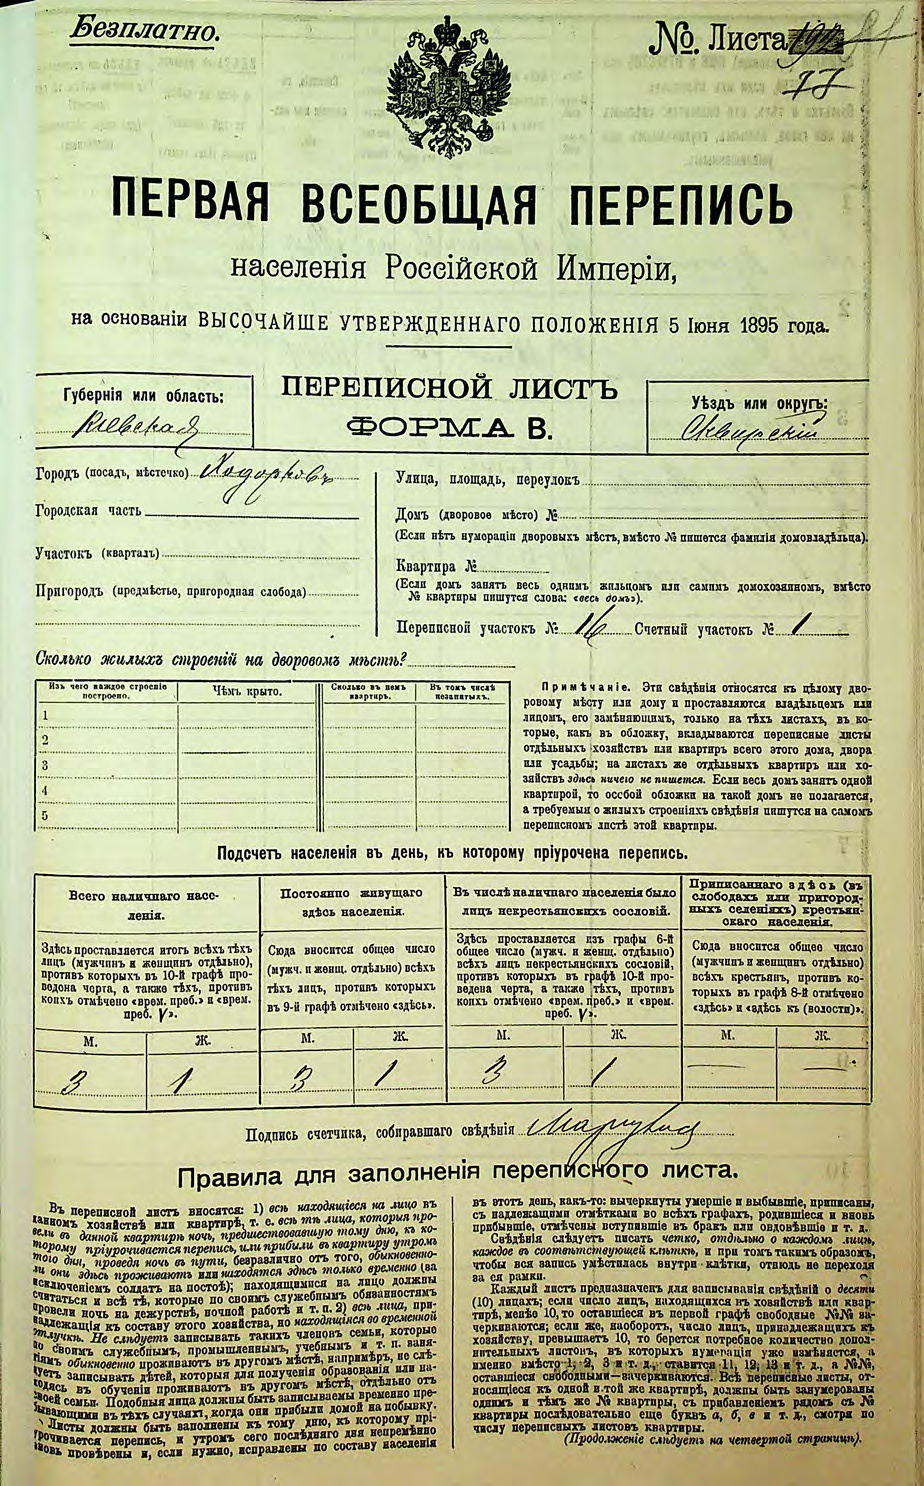 Безплатно.
№. Листа
77
ПЕРВАЯ ВСЕОБЩАЯ ПЕРЕПИСЬ
населенія Россійской Имперіи,
на основаніи ВЫСОЧАЙШЕ УТВЕРЖДЕННАГО ПОЛОЖЕНІЯ 5 Іюня 1895 года.
Губернія или область:
Кіевская
ПЕРЕПИСНОЙ ЛИСТЪ
ФОРМА В.
Уѣздъ или округъ:
Сквирскій
Городъ (посадъ, мѣстечко) Ходорковъ
Городская часть
Участокъ (кварталъ)
Пригородъ (предмѣстье, пригородная слобода)
Улица, площадь, переулокъ
Домъ (дворовое мѣсто) №
(Если нѣтъ нумораціи дворовыхъ мѣстъ, вмѣсто № пишется фамилія домовладѣльца).
Квартира №
(Если домъ занятъ весь однимъ жильцомъ или самимъ домохозяиномъ, вмѣсто
№ квартиры пишутся слова: «весь домъ»).
Переписной участокъ № 16 Счетный участокъ № 1
Сколько жилыхъ строеній на дворовомъ мѣстѣ?
Изъ чего каждое строеніе
построено.
Чѣмъ крыто.
Сколько въ немъ
квартиръ.
Въ томъ числѣ
незанятыхъ.
1
2
3
4
5
Примѣчаніе. Эти свѣдѣнія относятся къ цѣлому дво-
ровому мѣсту или дому и проставляются владѣльцемъ или
лицомъ, его замѣняющимъ, только на тѣхъ листахъ, въ ко-
торые, какъ въ обложку, вкладываются переписные листы
отдѣльныхъ хозяйствъ или квартиръ всего этого дома, двора
или усадьбы; на листахъ же отдѣльныхъ квартиръ или хо-
зяйствъ здѣсь ничего не пишется. Если весь домъ занятъ одной
квартирой, то особой обложки на такой домъ не полагается,
а требуемыя о жилыхъ строеніяхъ свѣдѣнія пишутся на самомъ
переписномъ листѣ этой квартиры.
Подсчетъ населенія въ день, къ которому пріурочена перепись.
Всего наличнаго насе-
ленія.
Здѣсь проставляется итогъ всѣхъ тѣхъ
лицъ (мужчинъ и женщинъ отдѣльно),
противъ которыхъ въ 10-й графѣ про-
ведона черта, а также тѣхъ, противъ
коихъ отмѣчено «врем. преб.» и «врем.
преб. V».
Постоянно живущаго
здѣсь населенія.
Сюда вносится общее число
(мужч. и женщ. отдѣльно) всѣхъ
тѣхъ лицъ, противъ которыхъ
въ 9-й графѣ отмѣчено «здѣсь».
Въ числѣ наличнаго населенія было
лицъ некрестьянскихъ сословій.
Здѣсь проставляется изъ графы 6-й
общее число (мужч. и женщ. отдѣльно)
всѣхъ лицъ некрестьянскихъ сословій,
противъ которыхъ въ графѣ 10-й про-
ведена черта, а также тѣхъ, противъ
коихъ отмѣчено «врем. преб.» и «врем.
преб. V».
Приписаннаго здѣсь (въ
слободахъ или пригород-
ныхъ селеніяхъ) крестьян-
скаго населенія.
Сюда вносится общее число
(мужчинъ и женщинъ отдѣльно)
всѣхъ крестьянъ, противъ ко-
торыхъ въ графѣ 8-й отмѣчено
«здѣсь» и «здѣсь къ (волости)».
М. Ж. М. Ж. М. Ж. М. Ж.
3 1 3 1 3 1 — —
Подпись счетчика, собиравшаго свѣдѣнія
Правила для заполненія переписного листа.
Въ переписной листъ вносятся: 1) всѣ находящіеся на лицо въ
данномъ хозяйствѣ или квартирѣ, т. е. всѣ тѣ лица, которыя про-
вели въ данной квартирѣ ночь, предшествовавшую тому дню, къ ко-
торому пріурочивается перепись, или прибыли въ квартиру утромъ
того дня, проведя ночь въ пути, безразлично отъ того, обыкновенно-
ли они здѣсь проживаютъ или находятся здѣсь только временно (за
исключеніемъ солдатъ на постоѣ); находящимися на лицо должны
считаться и всѣ тѣ, которые по своимъ служебнымъ обязанностямъ
провели ночь на дежурствѣ, ночной работѣ и т. п. 2) всѣ лица, при-
надлежащія къ составу этого хозяйства, но находящіяся во временной
отлучкѣ. Не слѣдуетъ записывать такихъ членовъ семьи, которые
по своимъ служебнымъ, промышленнымъ, учебнымъ и т. п. заня-
тіямъ обыкновенно проживаютъ въ другомъ мѣстѣ, напримѣръ, не слѣ-
дуетъ записывать дѣтей, которыя для полученія образованія или на-
ходясь въ обученіи проживаютъ въ другомъ мѣстѣ, отдѣльно отъ
своей семьи. Подобныя лица должны быть записываемы временно пре-
бывающими въ тѣхъ случаяхъ, когда они прибыли домой на побывку.
Листы должны быть заполнены къ тому дню, къ которому прі-
урочивается перепись, и утромъ сего послѣдняго дня непремѣнно
вновь провѣрены и, если нужно, исправлены по составу населенія
въ этотъ день, какъ-то: вычеркнуты умершіе и выбывшіе, приписаны,
съ надлежащими отмѣтками во всѣхъ графахъ, родившіеся и вновь
прибывшіе, отмѣчены вступившіе въ бракъ или овдовѣвшіе и т. д.
Свѣдѣнія слѣдуетъ писать четко, отдѣльно о каждомъ лицѣ,
каждое въ соотвѣтствующей клѣткѣ, и при томъ такимъ образомъ,
чтобы вся запись умѣстилась внутри клѣтки, отнюдь не переходя
за ея рамки.
Каждый листъ предназначенъ для записыванія свѣдѣній о десяти
(10) лицахъ; если число лицъ, находящихся въ хозяйствѣ или квар-
тирѣ, менѣе 10, то оставшіеся въ первой графѣ свободные №№ вы-
черкиваются; если же, наоборотъ, число лицъ, принадлежащихъ къ
хозяйству, превышаетъ 10, то берется потребное количество допол-
нительныхъ листовъ, въ которыхъ нумерація уже измѣняется, а
именно вмѣсто 1, 2, 3 и т. д., ставится 11, 12, 13 и т. д., а №№,
оставшіеся свободными—вычеркиваются. Всѣ переписные листы, от-
носящіеся къ одной и той же квартирѣ, должны быть занумерованы
однимъ и тѣмъ же № квартиры, съ прибавленіемъ рядомъ съ №
квартиры послѣдовательно еще буквъ а, б, в и т. д., смотря по
числу переписныхъ листовъ квартиры.
(Продолженіе слѣдуетъ на четвертой страницѣ).